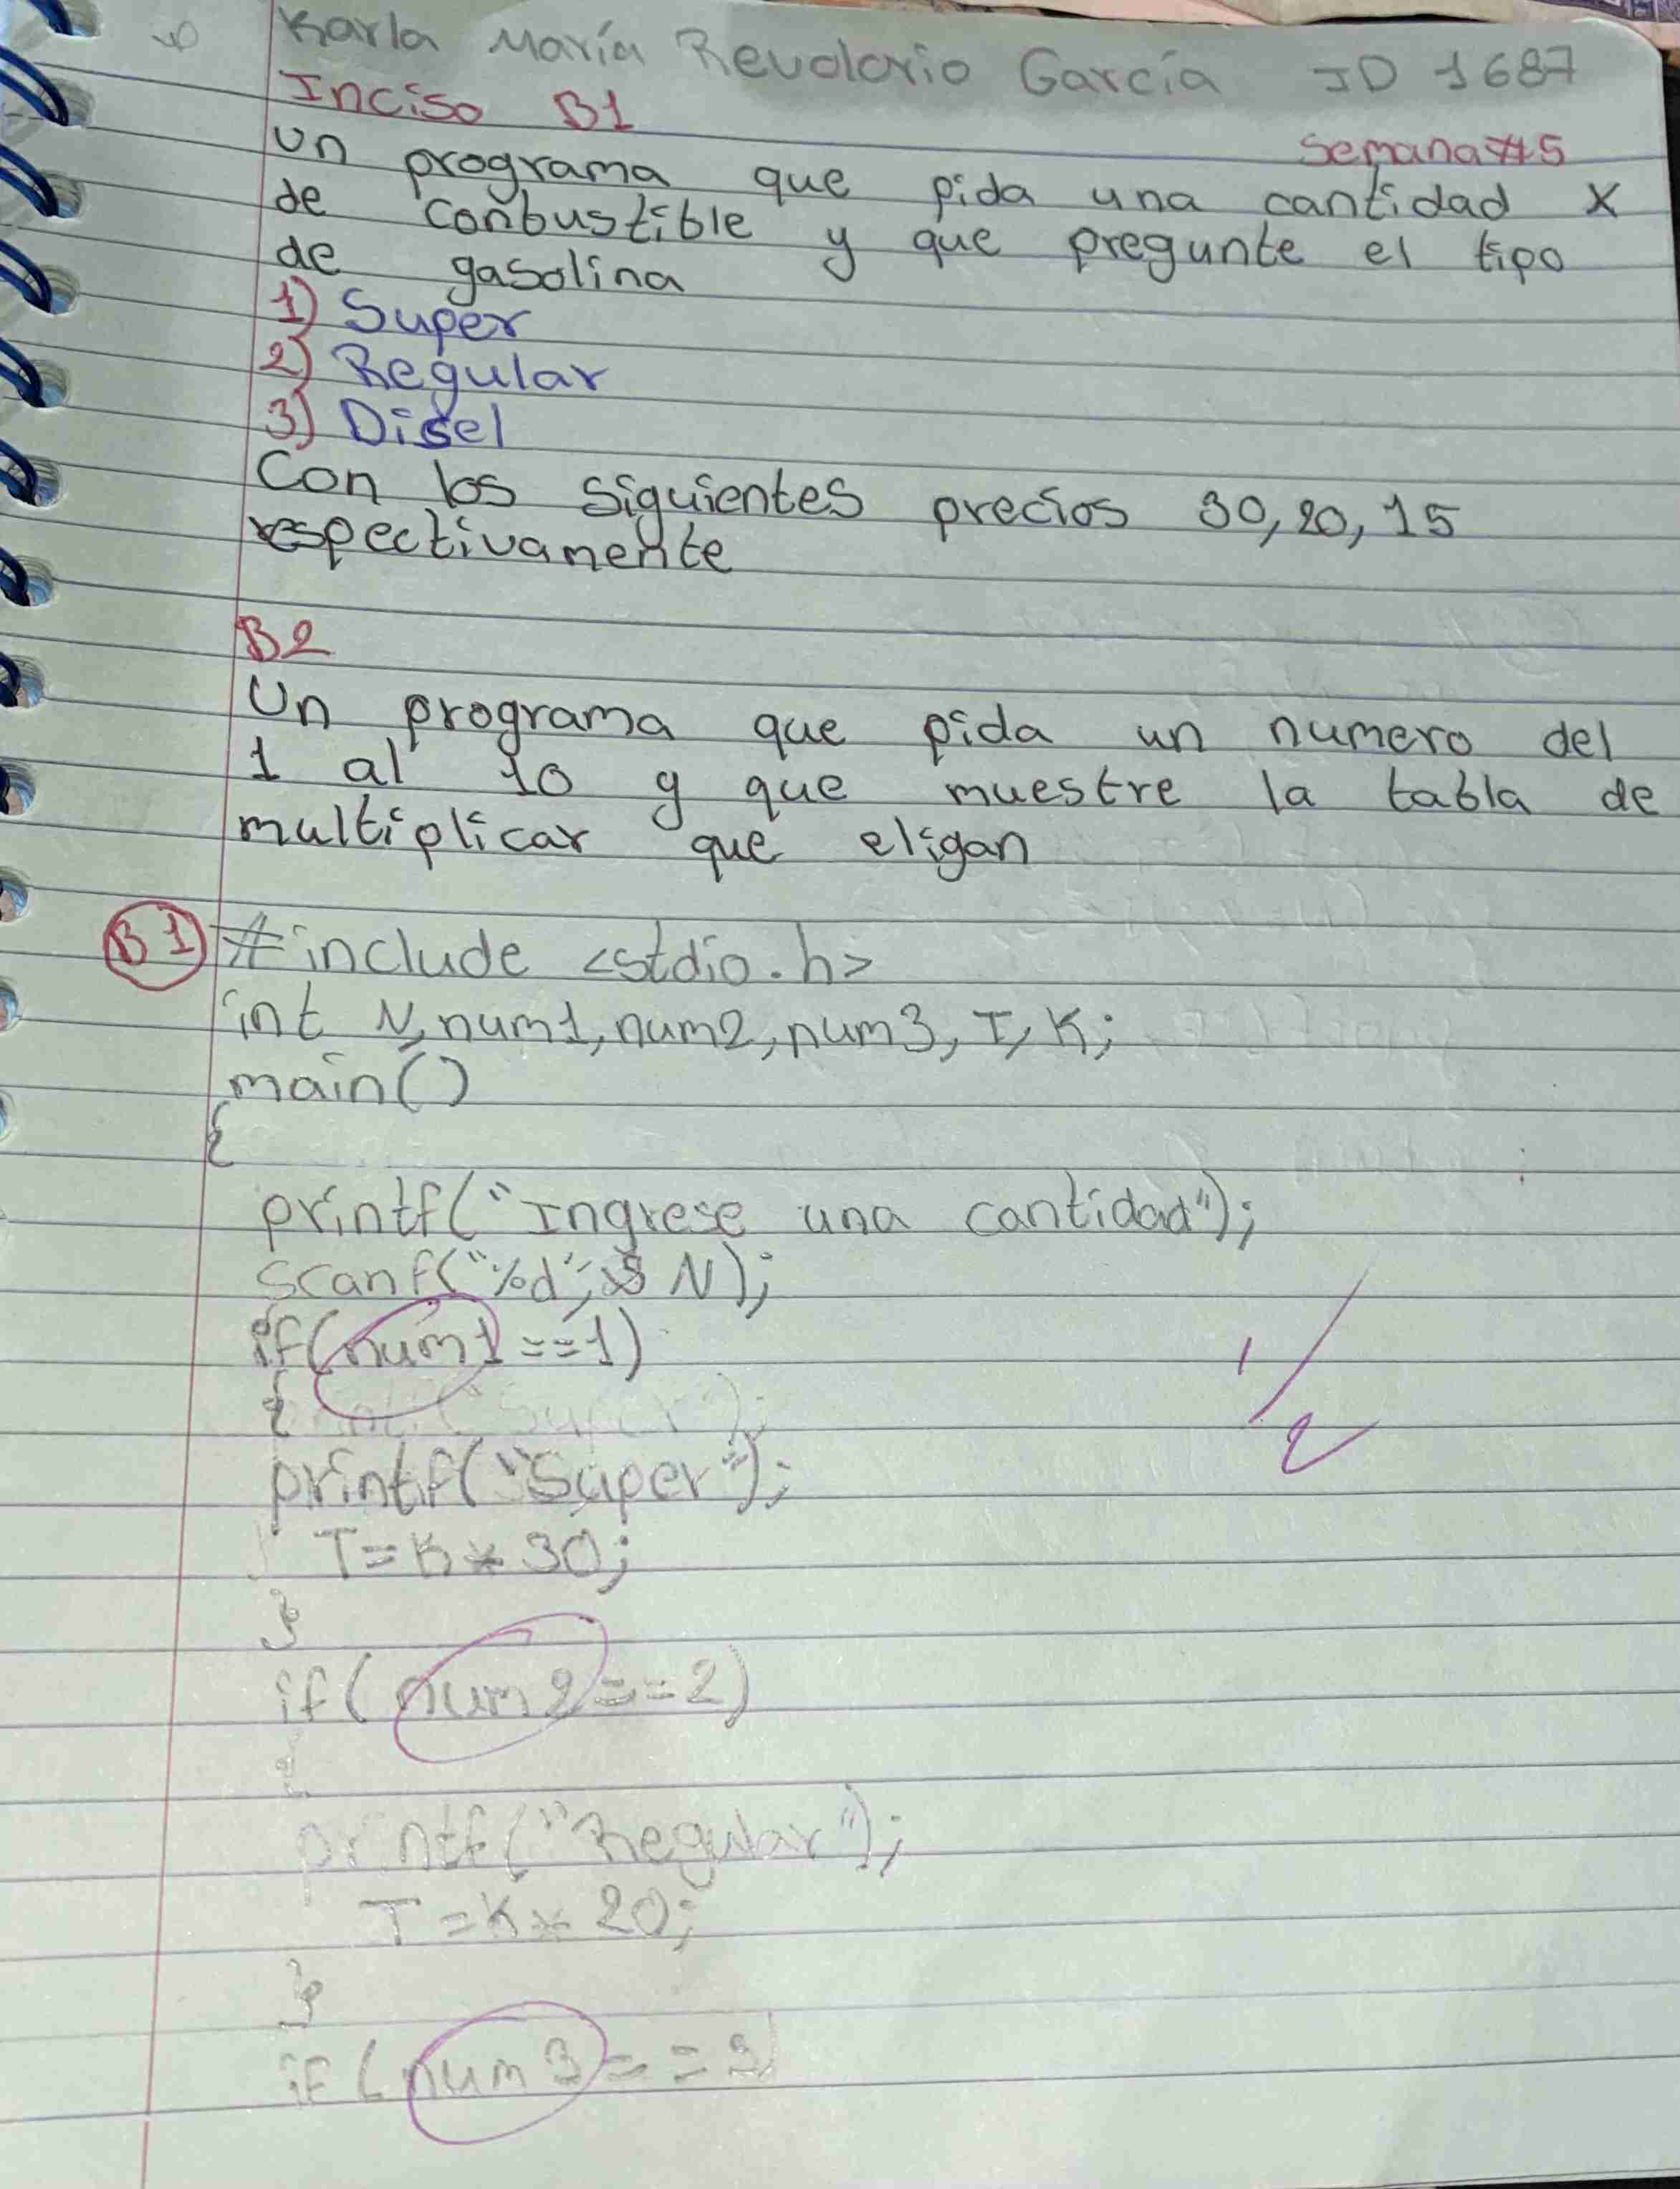 Karla María Revolorio García ID 1687
Inciso B1
Semana #5
Un programa que pida una cantidad X
de conbustible y que pregunte el tipo
de gasolina
1) Super
2) Regular
3) Disel
Con los siguientes precios 30, 20, 15
respectivamente
B2
Un programa que pida un numero del
1 al 10 y que muestre la tabla de
multiplicar que eligan
B1 #include <stdio.h>
int N, num1, num2, num3, T, K;
main()
{
printf("Ingrese una cantidad");
scanf("%d", & N);
if(num1==1)
{
printf("Super");
T=K*30;
}
1/2
if(num2==2)
{
printf("Regular");
T=K*20;
}
if(num3==3)